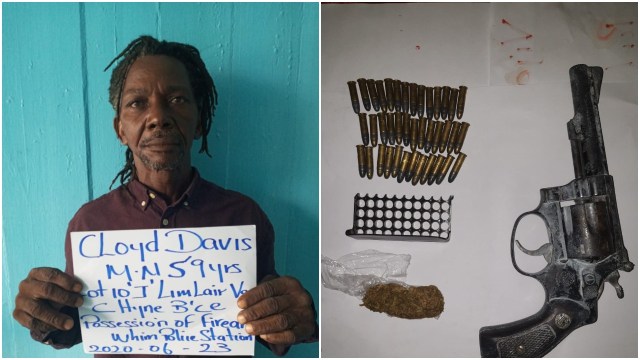 CLoyd Davis
M.N 59 yrs
Lot 10 'I' Limlair
C Hyne B'ce
Possession of Firearm
Whim Police Station
2020-06-23